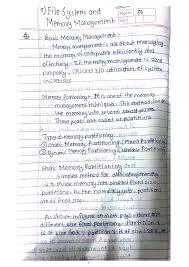 5) File System and
Memory Management
Basic Memory Management :
Memory management is all about managing
the memory of computer efficiently and
effectively. If the memory management is done
properly, CPU and I/O utilization of system
increases.
Memory Partitioning : It is one of the memory
management technique. This method divides
the memory into several small pieces.
These parts are called as partitions.
Types of memory partitioning :
Static Memory Partitioning (Fixed Partition)
Dynamic Memory Partitioning (Variable Partition)
Static Memory Partitioning :
simplest method for
is to divide memory into several fixed size
partitions.
of fixed size.
As shown in figure
different size fixed partitions. Partition 1
is of size